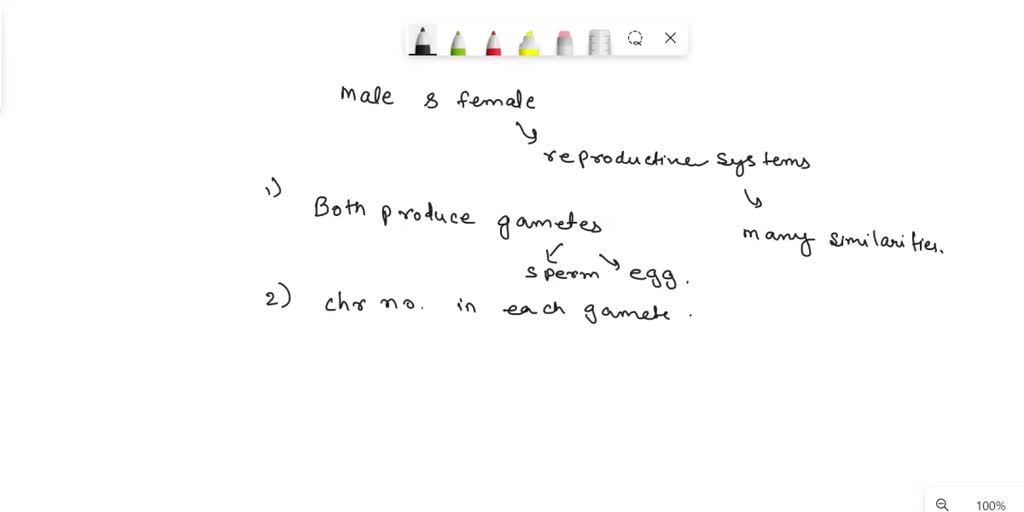 male & female
reproductive systems
1)
Both produce gametes
many similarities.
sperm egg.
2) chr no. in each gamete.
100%